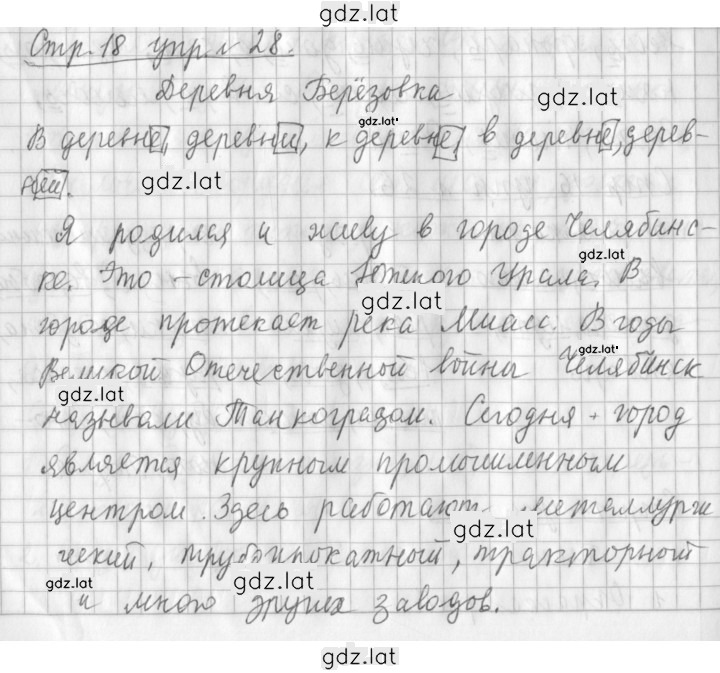 gdz.lat
Стр. 18 упр. № 28.
Деревня Берёзовка
gdz.lat
gdz.lat
В деревне, деревни, к деревне, в деревне, дерев-
ней.
gdz.lat
Я родился и живу в городе Челябинс-
gdz.lat
ке. Это - столица Южного Урала. В
gdz.lat
городе протекает река Миасс. В годы
gdz.lat
Великой Отечественной войны Челябинск
gdz.lat
называли Танкоградом. Сегодня - город
является крупным промышленным
центром. Здесь работают металлурги-
gdz.lat
ческий, трубопрокатный, тракторный
gdz.lat
gdz.lat
gdz.lat
и много других заводов.
gdz.lat